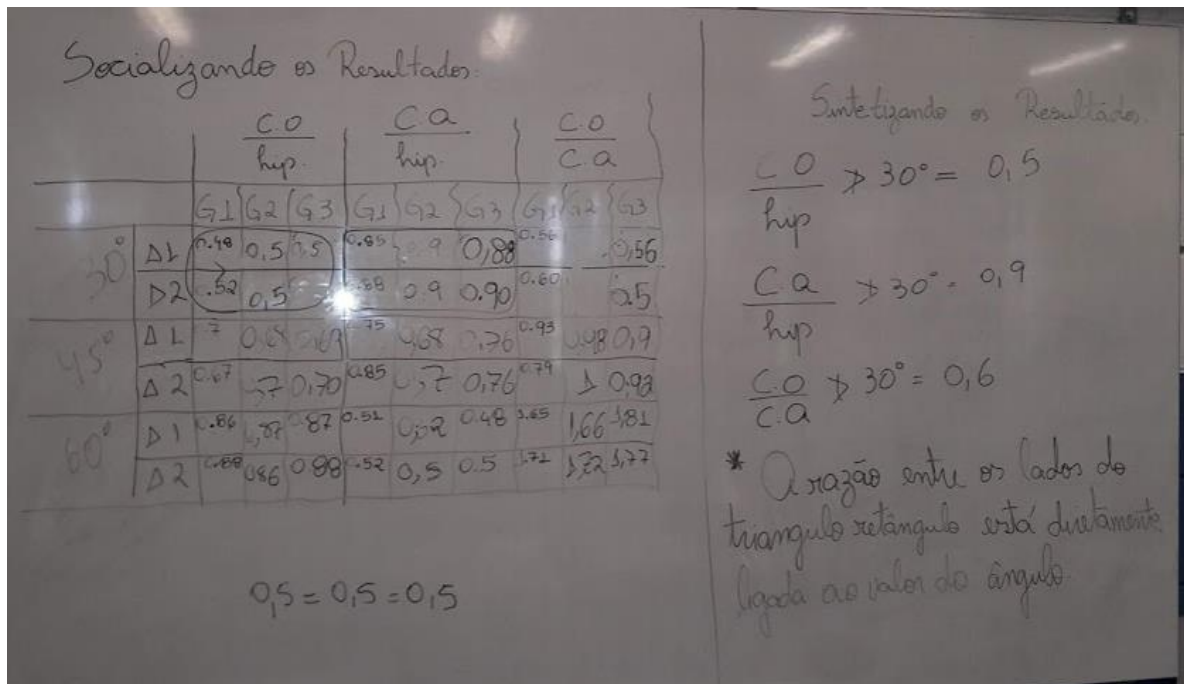 Socializando os Resultados:
C.O C.a C.O
hip. hip. C.a
G1 G2 G3 G1 G2 G3 G1 G2 G3
30° Δ1 0.48 0,5 0,5 0.85 0,88 0.56 0,56
Δ2 .52 0,5 0.9 0.90 0.60 0.5
45° Δ1 0,68 0.75 0,68 0.76 0.93 0,98 0,9
Δ2 0.67 0,70 0.85 0,76 0.79 1 0,92
60° Δ1 0.86 0.87 0.51 0.48 1.65 1,66 1,81
Δ2 086 088 .52 0,5 0.5 1.71 1,72 1,77
0,5 = 0,5 = 0,5
Sintetizando os Resultados.
C O
hip
∢ 30° = 0,5
C.a
hip
∢ 30° = 0,9
C.O
C.a
∢ 30° = 0,6
* A razão entre os lados do
triangulo retângulo está diretamente
ligada ao valor do ângulo.